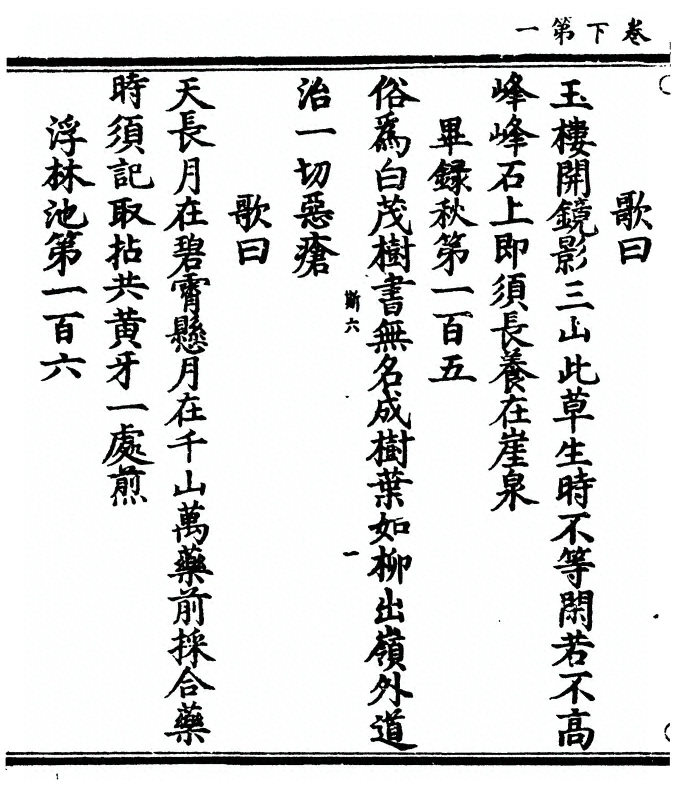 卷下第一
歌曰
玉樓開鏡影三山此草生時不等閑若不高
峰峰石上即須長養在崖泉
畢錄秋第一百五
俗為白茂樹書無名成樹葉如柳出嶺外道
斯六
一
治一切惡瘡
歌曰
天長月在碧霄懸月在千山萬藥前採合藥
時須記取拈共黃牙一處煎
浮林池第一百六